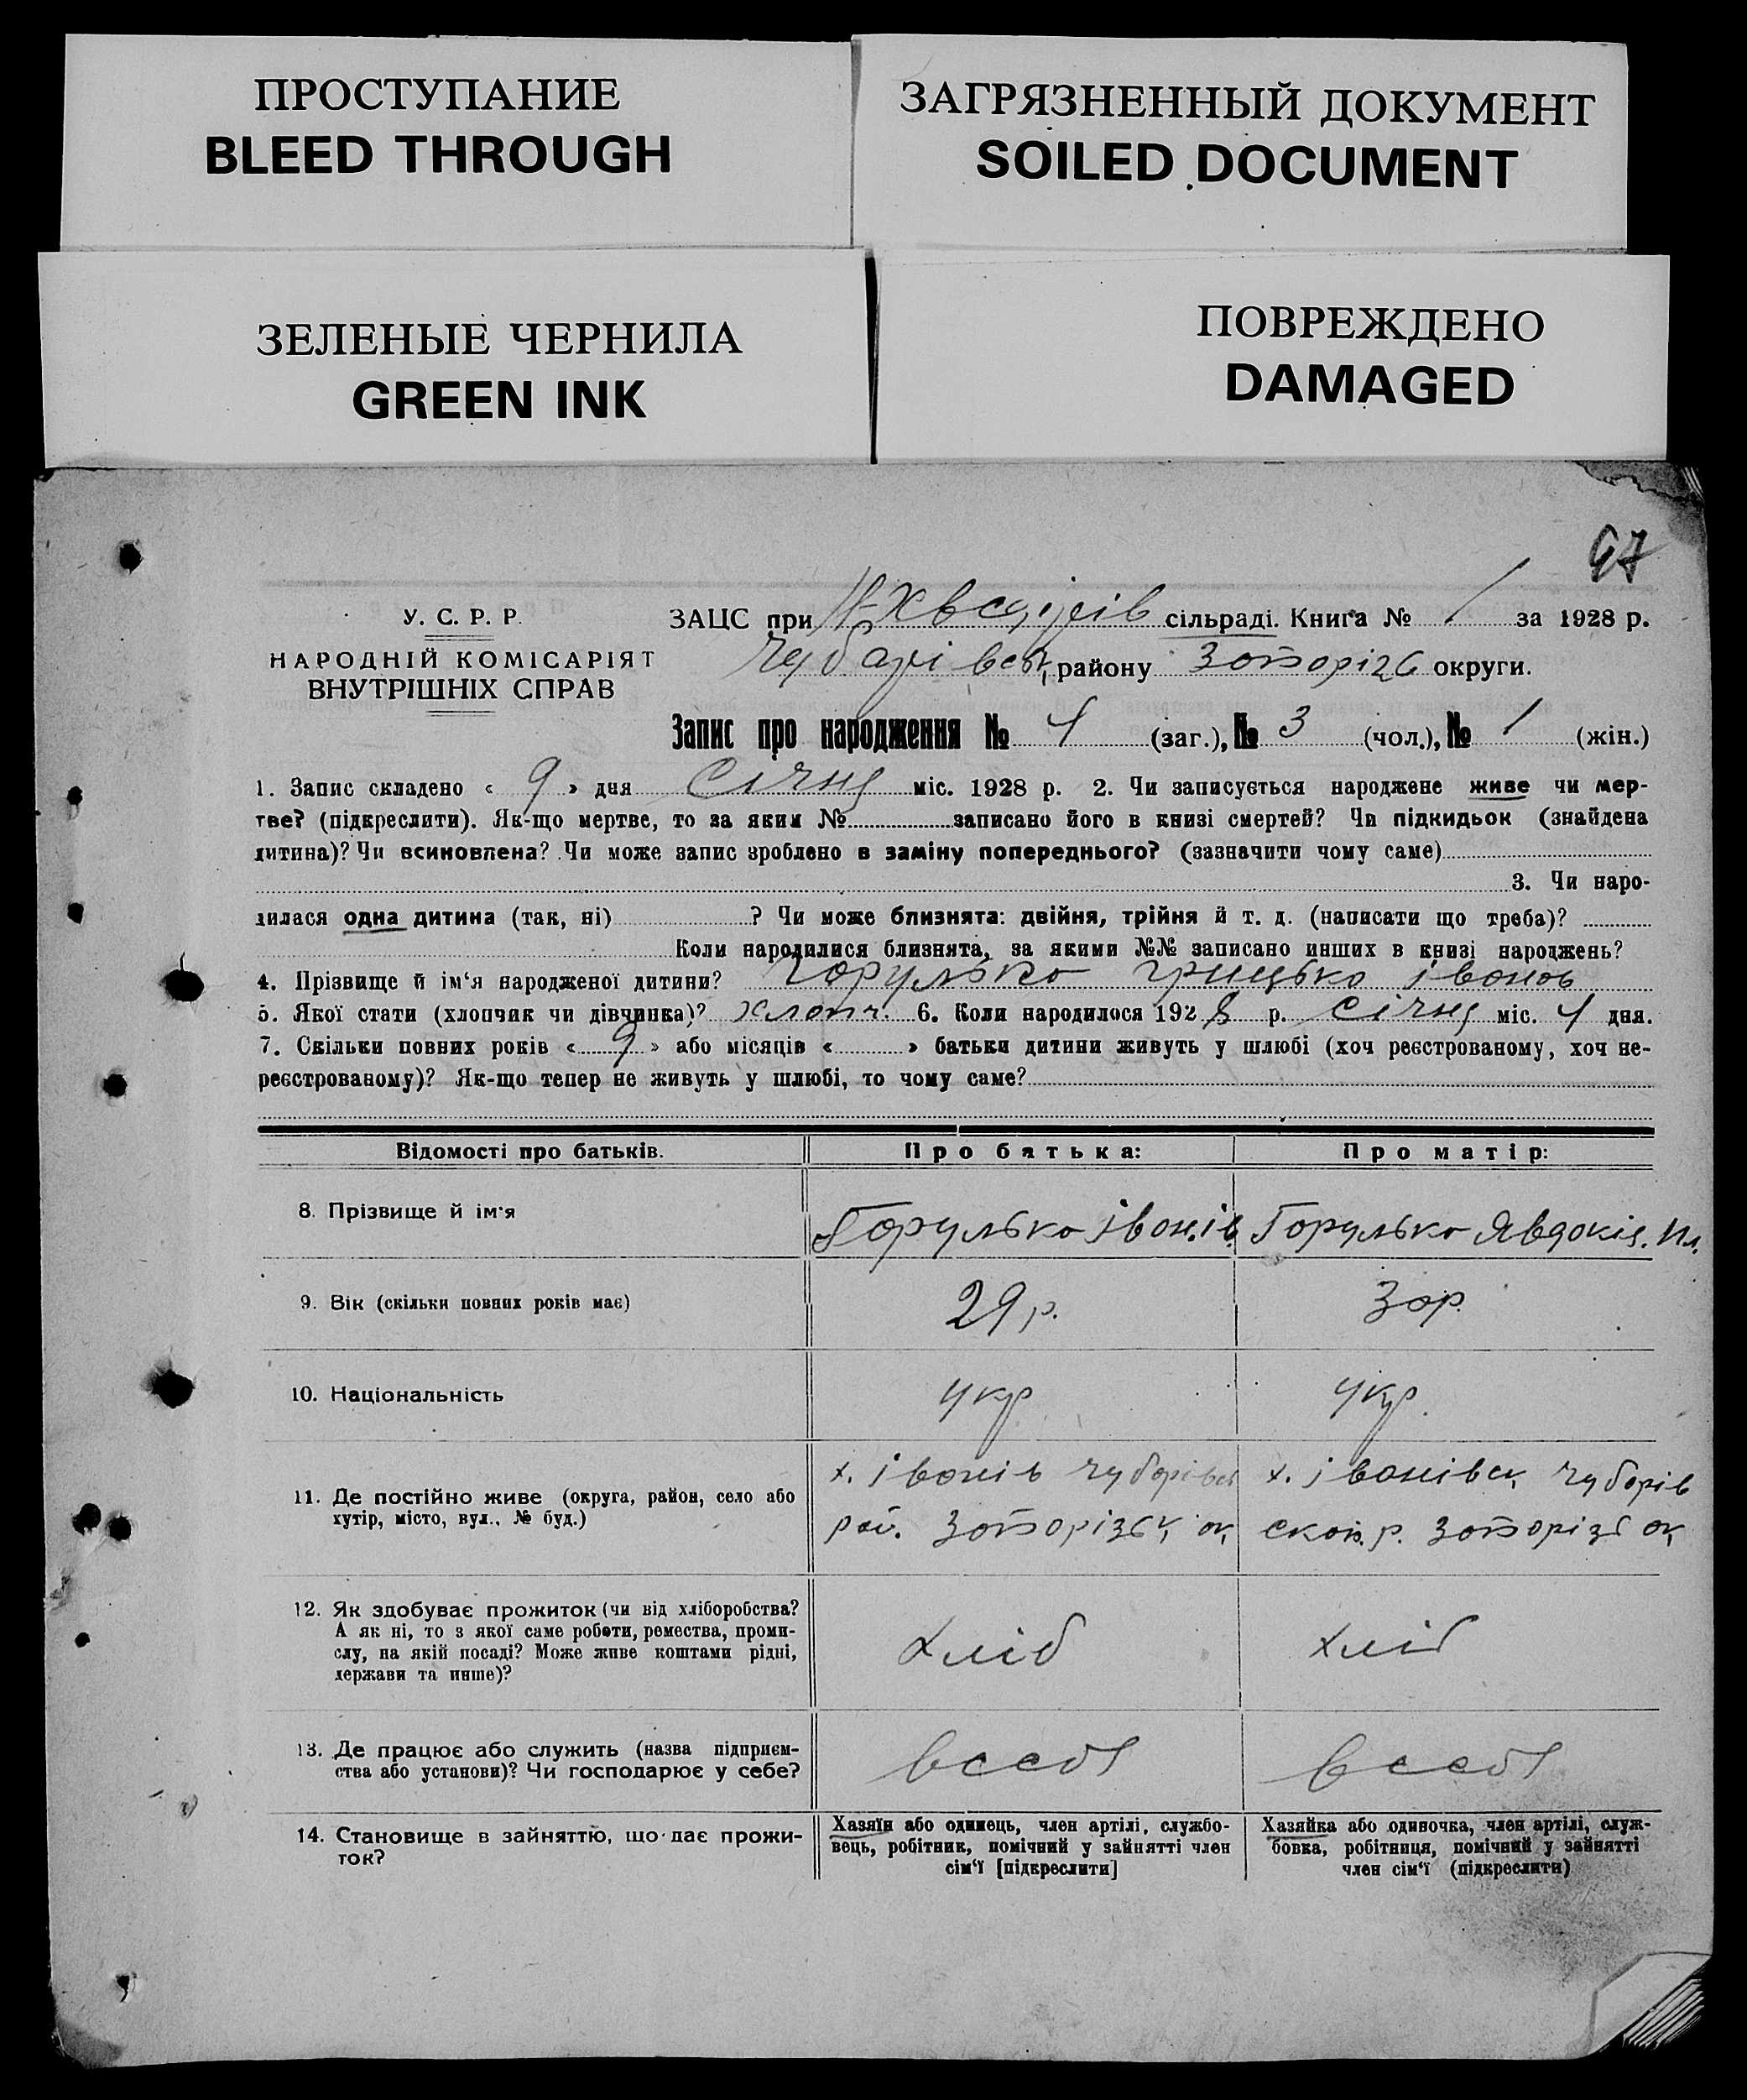 ПРОСТУПАНИЕ
BLEED THROUGH
ЗАГРЯЗНЕННЫЙ ДОКУМЕНТ
SOILED DOCUMENT
ЗЕЛЕНЫЕ ЧЕРНИЛА
GREEN INK
ПОВРЕЖДЕНО
DAMAGED
47
У. С. Р. Р.
НАРОДНІЙ КОМІСАРІЯТ
ВНУТРІШНІХ СПРАВ
ЗАЦС при сільраді. Книга № 1 за 1928 р.
Чубарівськ району Запоріз округи.
Запис про народження № 4 (заг.), № 3 (чол.), № 1 (жін.)
1. Запис складено « 9 » дня Січня міс. 1928 р. 2. Чи записується народжене живе чи мер-
тве? (підкреслити). Як-що мертве, то за яким № записано його в книзі смертей? Чи підкидьок (знайдена
дитина)? Чи всиновлена? Чи може запис зроблено в заміну попереднього? (зазначити чому саме)
3. Чи наро-
дилася одна дитина (так, ні) ? Чи може близнята: двійня, трійня й т. д. (написати що треба)?
Коли народилися близнята, за якими №№ записано инших в книзі народжень?
4. Прізвище й ім‘я народженої дитини? Горулько Грицько Іванов
5. Якої стати (хлопчик чи дівчинка)? Хлопч. 6. Коли народилося 1928 р. Січня міс. 4 дня.
7. Скільки повних років « 9 » або місяців « » батьки дитини живуть у шлюбі (хоч реєстрованому, хоч не-
реєстрованому)? Як-що тепер не живуть у шлюбі, то чому саме?
Відомості про батьків. Про батька: Про матір:
8. Прізвище й ім'я Горулько Горулько Явдокія
9. Вік (скільки повних років має) 29 р. 30 р.
10. Національність укр укр.
11. Де постійно живе (округа, район, село або
хутір, місто, вул., № буд.)
х. Іванів Чубарівськ
рай. Запорізьк ок
х. Іванівськ Чубарів
ськ. р. Запорізь ок
12. Як здобуває прожиток (чи від хліборобства?
А як ні, то з якої саме роботи, ремества, проми-
слу, на якій посаді? Може живе коштами рідні,
держави та инше)?
хліб хліб
13. Де працює або служить (назва підприєм-
ства або установи)? Чи господарює у себе?
в себе в себе
14. Становище в зайняттю, що дає прожи-
ток?
Хазяїн або одинець, член артілі, службо-
вець, робітник, помічний у зайнятті член
сім‘ї [підкреслити]
Хазяйка або одиночка, член артілі, служ-
бовка, робітниця, помічний у зайнятті
член сім‘ї (підкреслити)